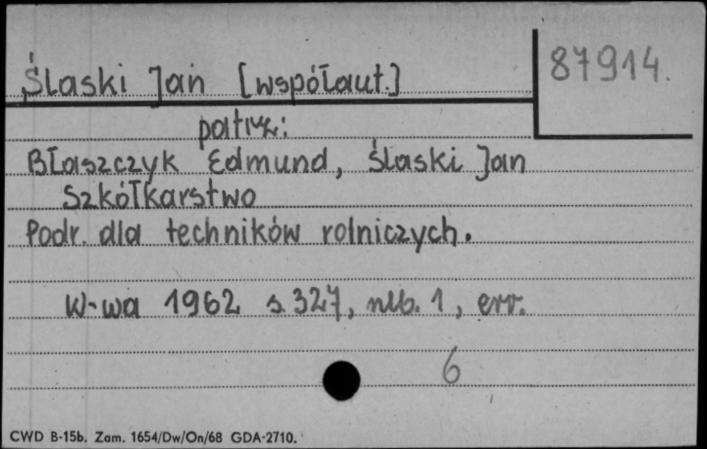 Ślaski Jan [współaut.]
87914.
patrz:
Błaszczyk Edmund, Ślaski Jan
Szkółkarstwo
Podr. dla techników rolniczych.
W-wa 1962 s. 327, nlb. 1, err.
6
CWD B-15b. Zam. 1654/Dw/On/68 GDA-2710.